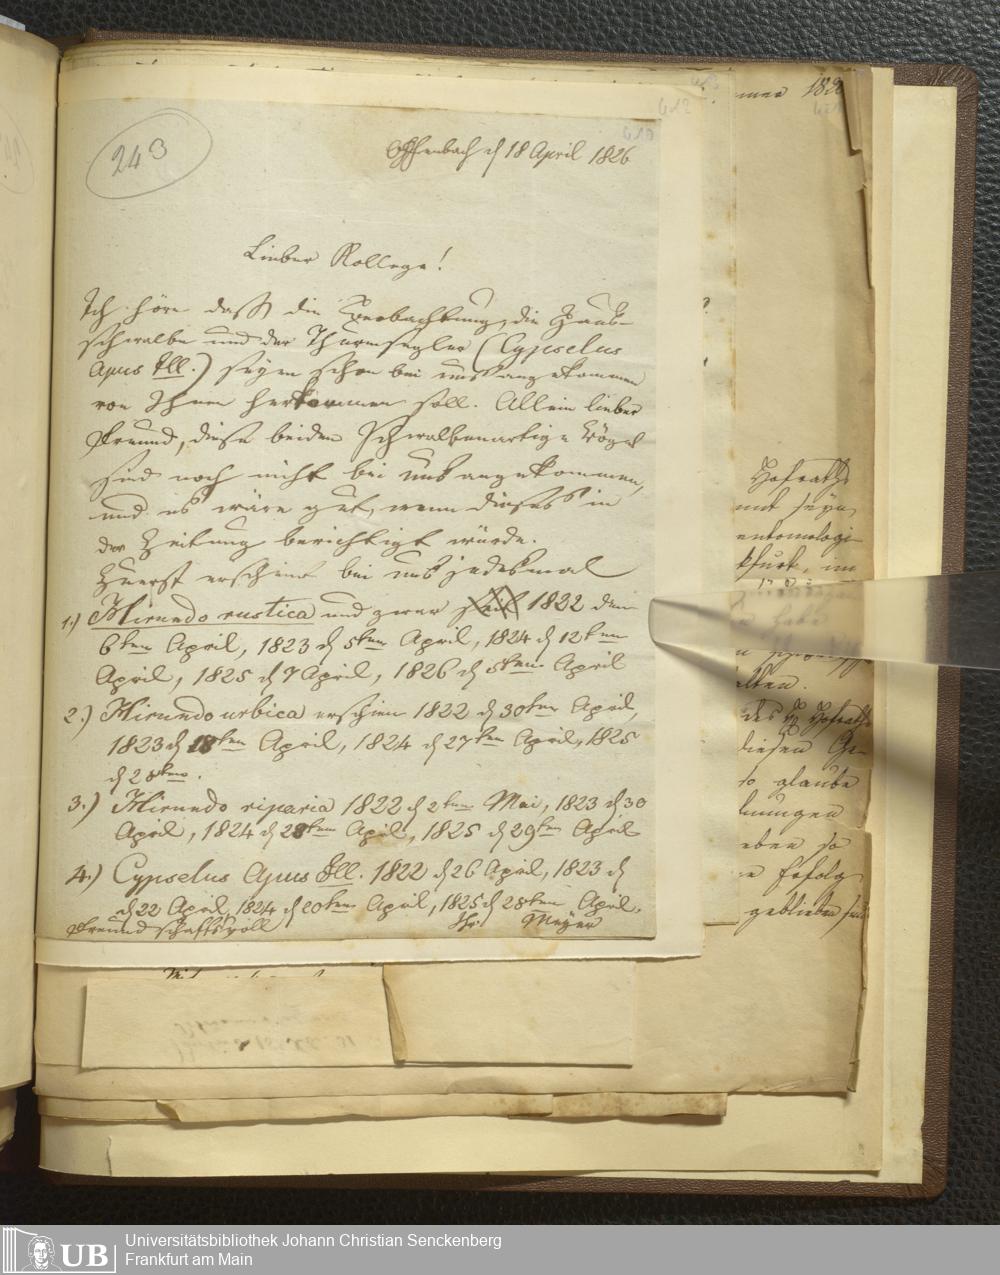 243
419
412
413
Offenbach d 18 April 1826
Lieber Kollege!
Ich höre daß die Beobachtung, die Haus-
schwalbe und der Thurmsegler (Cypselus
Apus Ill.) seyen schon bei uns angekommen
von Ihnen herkommen soll. Allein lieber
Freund, diese beiden Schwalbenartige Vögel
sind noch nicht bei uns angekommen,
und es wäre gut, wenn dieses in
der Zeitung berichtigt würde.
Zuerst erscheint bei uns jedesmal
1.) Hirundo rustica und zwar 1822 den
6ten April, 1823 d 5ten April, 1824 d 12ten
April, 1825 d 7 April, 1826 d 5ten April
2.) Hirundo urbica erschien 1822 d 30ten April,
1823 d 18ten April, 1824 d 27ten April, 1825
d 28ten.
3.) Hirundo riparia 1822 d 2ten Mai, 1823 d 30
April, 1824 d 28ten April, 1825 d 29ten April
4.) Cypselus Apus Ill. 1822 d 26 April, 1823 d
d 22 April, 1824 d 20ten April, 1825 d 28ten April.
Freundschaftsvoll Ihr Meyer
Hofraths
seyn
entomologi
kfurt, im
habe
alten.
des H Hofraths
diesen Ge-
so glaube
eben so
Erfolg
geblieben
UB
Universitätsbibliothek Johann Christian Senckenberg
Frankfurt am Main